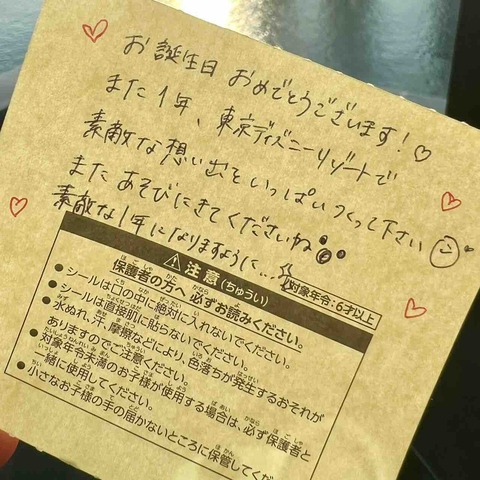 お誕生日 おめでとうございます!♡
また1年、東京ディズニーリゾートで
素敵な想い出をいっぱいつくって下さい
また あそびにきてくださいね
素敵な1年になりますように...
⚠注意(ちゅうい)
対象年令:6才以上
保護者の方へ 必ずお読みください。
●シールは口の中に絶対に入れないでください。
●シールは直接肌に貼らないでください。
●水ぬれ、汗、摩擦などにより、色落ちが発生するおそれが
ありますのでご注意ください。
●対象年令未満のお子様が使用する場合は、必ず保護者と
一緒に使用してください。
●小さなお子様の手の届かないところに保管してくだ